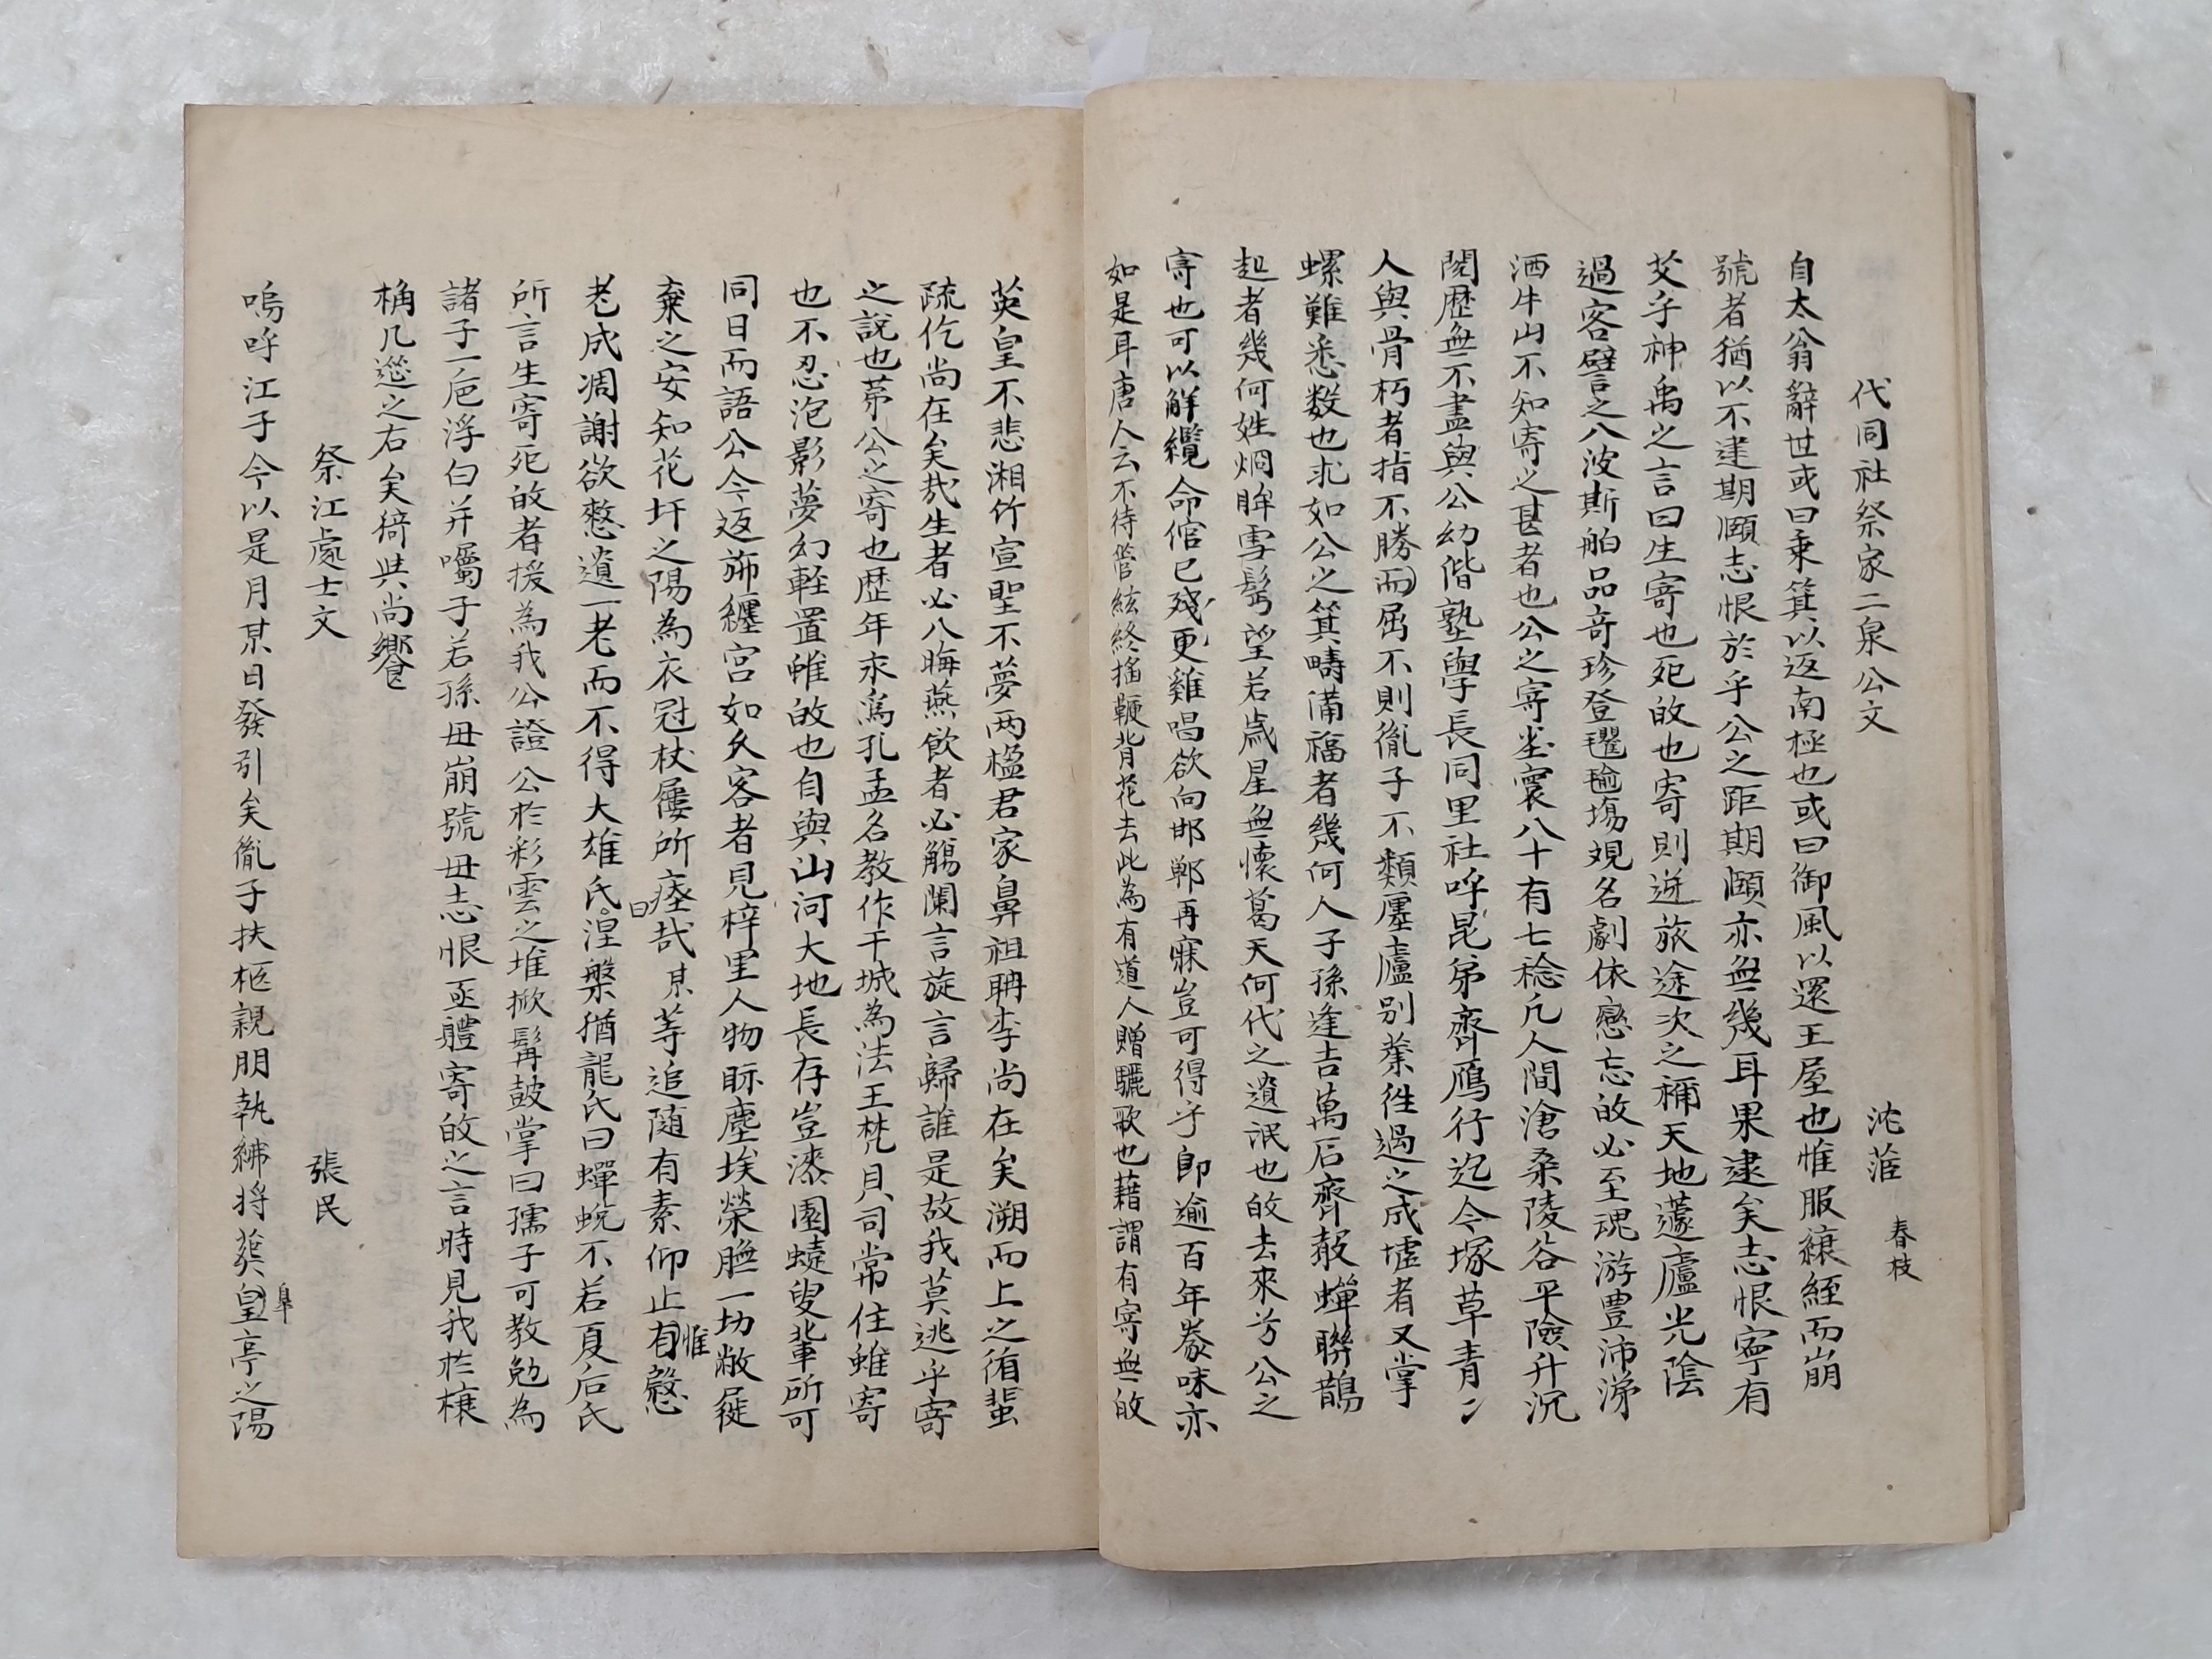 代同社祭家二泉公文
沈𦳝 春枝
自太翁辭世或曰乘箕以返南極也或曰御風以還王屋也惟服縗絰而崩
號者猶以不逮期頤志恨於乎公之距期頤亦無幾耳果逮矣志恨寧有
艾乎神禹之言曰生寄也死故也寄則逆旅途次之稱天地蘧廬光陰
過客譬之八波斯舶品奇珍登氍毹場覌名劇依戀忘故必至魂游豊沛涕
洒牛山不知寄之甚者也公之寄塵寰八十有七稔凡人間滄桑陵谷平險升沉
閱歷無不盡與公幼偕塾學長同里社呼昆弟齊鴈行迄今塚草青〻
人與骨朽者指不勝而屈不則胤子不類廛廬別業徃過之成墟者又掌
螺難悉數也求如公之箕疇備福者幾何人子孫逢吉萬石齊轂蟬聯鵲
起者幾何姓炯眸雪髩望若歲星無懷葛天何代之遺氓也故去來兮公之
寄也可以解纜命倌已殘更雞唱欲向邯鄲再寐豈可得乎卽逾百年羲味亦
如是耳唐人云不待管絃終搖鞭背花去此為有道人贈驪歌也藉謂有寄無故
英皇不悲湘竹宣聖不夢两楹君家鼻祖聃李尚在矣溯而上之循蜚
疏仡尚在矣哉生者必八晦燕飲者必觴闌言旋言歸誰是故我莫逃乎寄
之說也苐公之寄也歷年永為孔孟名教作干城為法王梵貝司常住雖寄
也不忍泡影夢幻輕置雖故也自與山河大地長存豈漆園蟯叟輩所可
同日而語公今返斾纏宮如久客者見梓里人物眎塵埃榮膴一切敝屣
棄之安知花圩之陽為衣冠杖屨所瘞哉某等追随有素仰止有慇
惟
老成凋謝欲憖遺一老而不得大雄氏曰涅槃猶龍氏曰蟬蛻不若夏后氏
所言生寄死故者援為我公證公於彩雲之堆掀髯鼓掌曰孺子可教勉為
諸子一巵浮白并囑子若孫毋崩號毋志恨亟軆寄故之言時見我於榱
桷几筵之右矣猗與尚饗
祭江處士文
張民
嗚呼江子今以是月某日發引矣胤子扶柩親朋執紼将葬皇亭之陽
阜